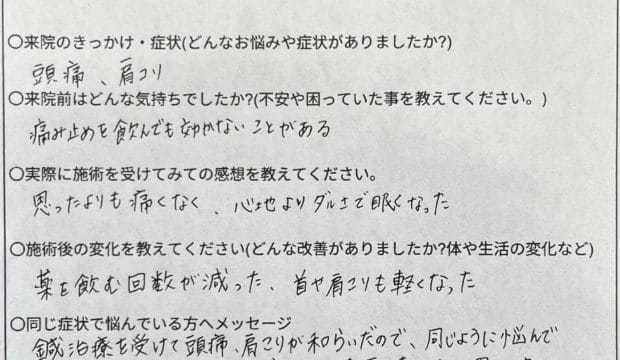 〇来院のきっかけ・症状(どんなお悩みや症状がありましたか?)
頭痛、肩コリ
〇来院前はどんな気持ちでしたか?(不安や困っていた事を教えてください。)
痛み止めを飲んでも効かないことがある
〇実際に施術を受けてみての感想を教えてください。
思ったよりも痛くなく、心地よりダルさで眠くなった
〇施術後の変化を教えてください(どんな改善がありましたか?体や生活の変化など)
薬を飲む回数が減った、首や肩こりも軽くなった
〇同じ症状で悩んでいる方へメッセージ
鍼治療を受けて頭痛、肩こりが和らいだので、同じように悩んで